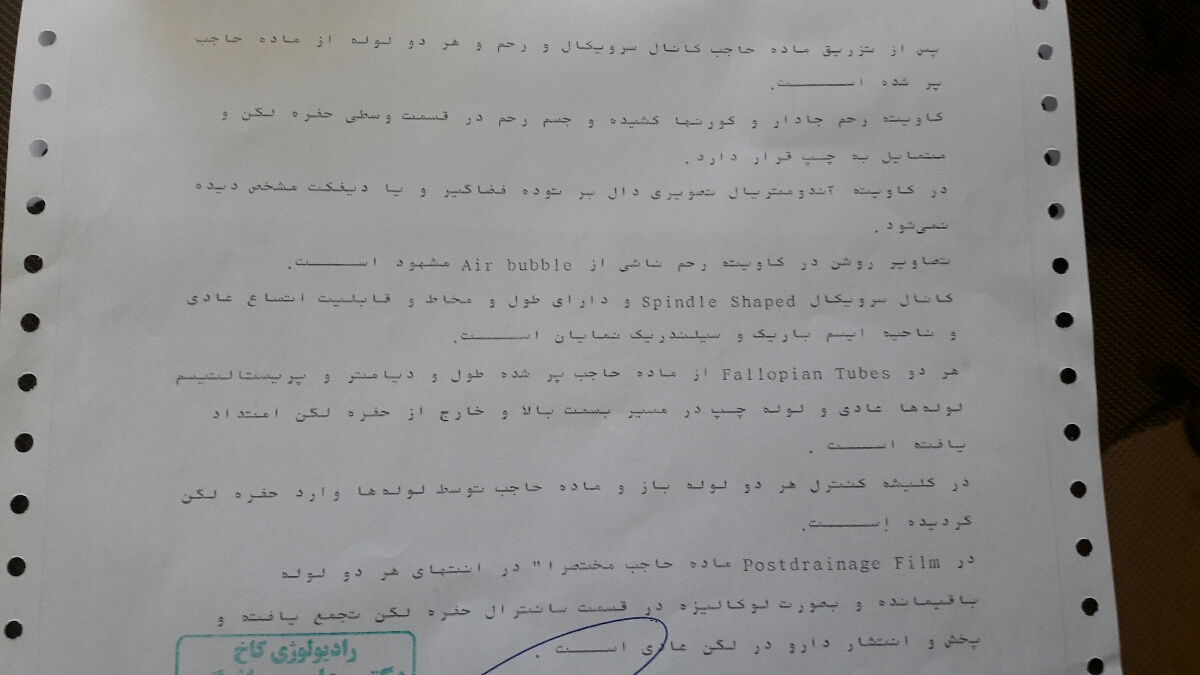 پس از تزریق ماده حاجب کانال سرویکال و رحم و هر دو لوله از ماده حاجب
پر شده اســـــت.
کاویته رحم جادار و کورنها کشیده و جسم رحم در قسمت وسطی حفره لگن و
متمایل به چپ قرار دارد .
در کاویته آندومتریال تصویری دال بر توده فضاگیر و یا دیفکت مشخص دیده
نمی‌شود .
تصاویر روشن در کاویته رحم ناشی از Air bubble مشهود اســـــت.
کانال سرویکال Spindle Shaped و دارای طول و مخاط و قابلیت اتساع عادی
و ناحیه ایسم باریک و سیلندریک نمایان اســـــت.
هر دو Fallopian Tubes از ماده حاجب پر شده طول و دیامتر و پریستالتیسم
لوله‌ها عادی و لوله چپ در مسیر بسمت بالا و خارج از حفره لگن امتداد
یافته اســـــت .
در کلیشه کنترل هر دو لوله باز و ماده حاجب توسط لوله‌ها وارد حفره لگن
گردیده اســـــت.
در Postdrainage Film ماده حاجب مختصرا" در انتهای هر دو لوله
باقیمانده و بصورت لوکالیزه در قسمت سانترال حفره لگن تجمع یافته و
پخش و انتشار دارو در لگن عادی اســـــت .
رادیولوژی کاخ